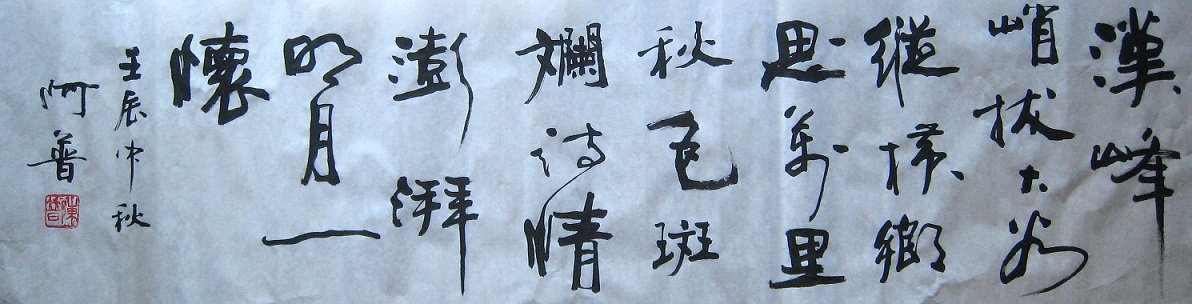 漢峰
峭拔大谷
縱橫鄉
思萬里
秋色斑
斕詩情
澎湃
明月一
懷
壬辰中秋
阿普